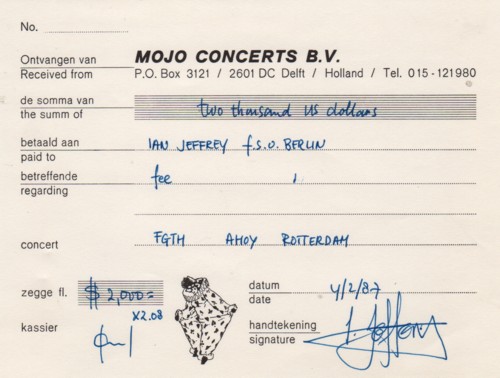 No.
Ontvangen van MOJO CONCERTS B.V.
Received from P.O. Box 3121 / 2601 DC Delft / Holland / Tel. 015-121980
de somma van
the summ of two thousand US dollars
betaald aan
paid to IAN JEFFREY f.s.o. BERLIN
betreffende
regarding fee
concert FGTH AHOY ROTTERDAM
zegge fl. $ 2,000=
x2.08
kassier
datum
date 4/2/87
handtekening
signature I. Jeffery